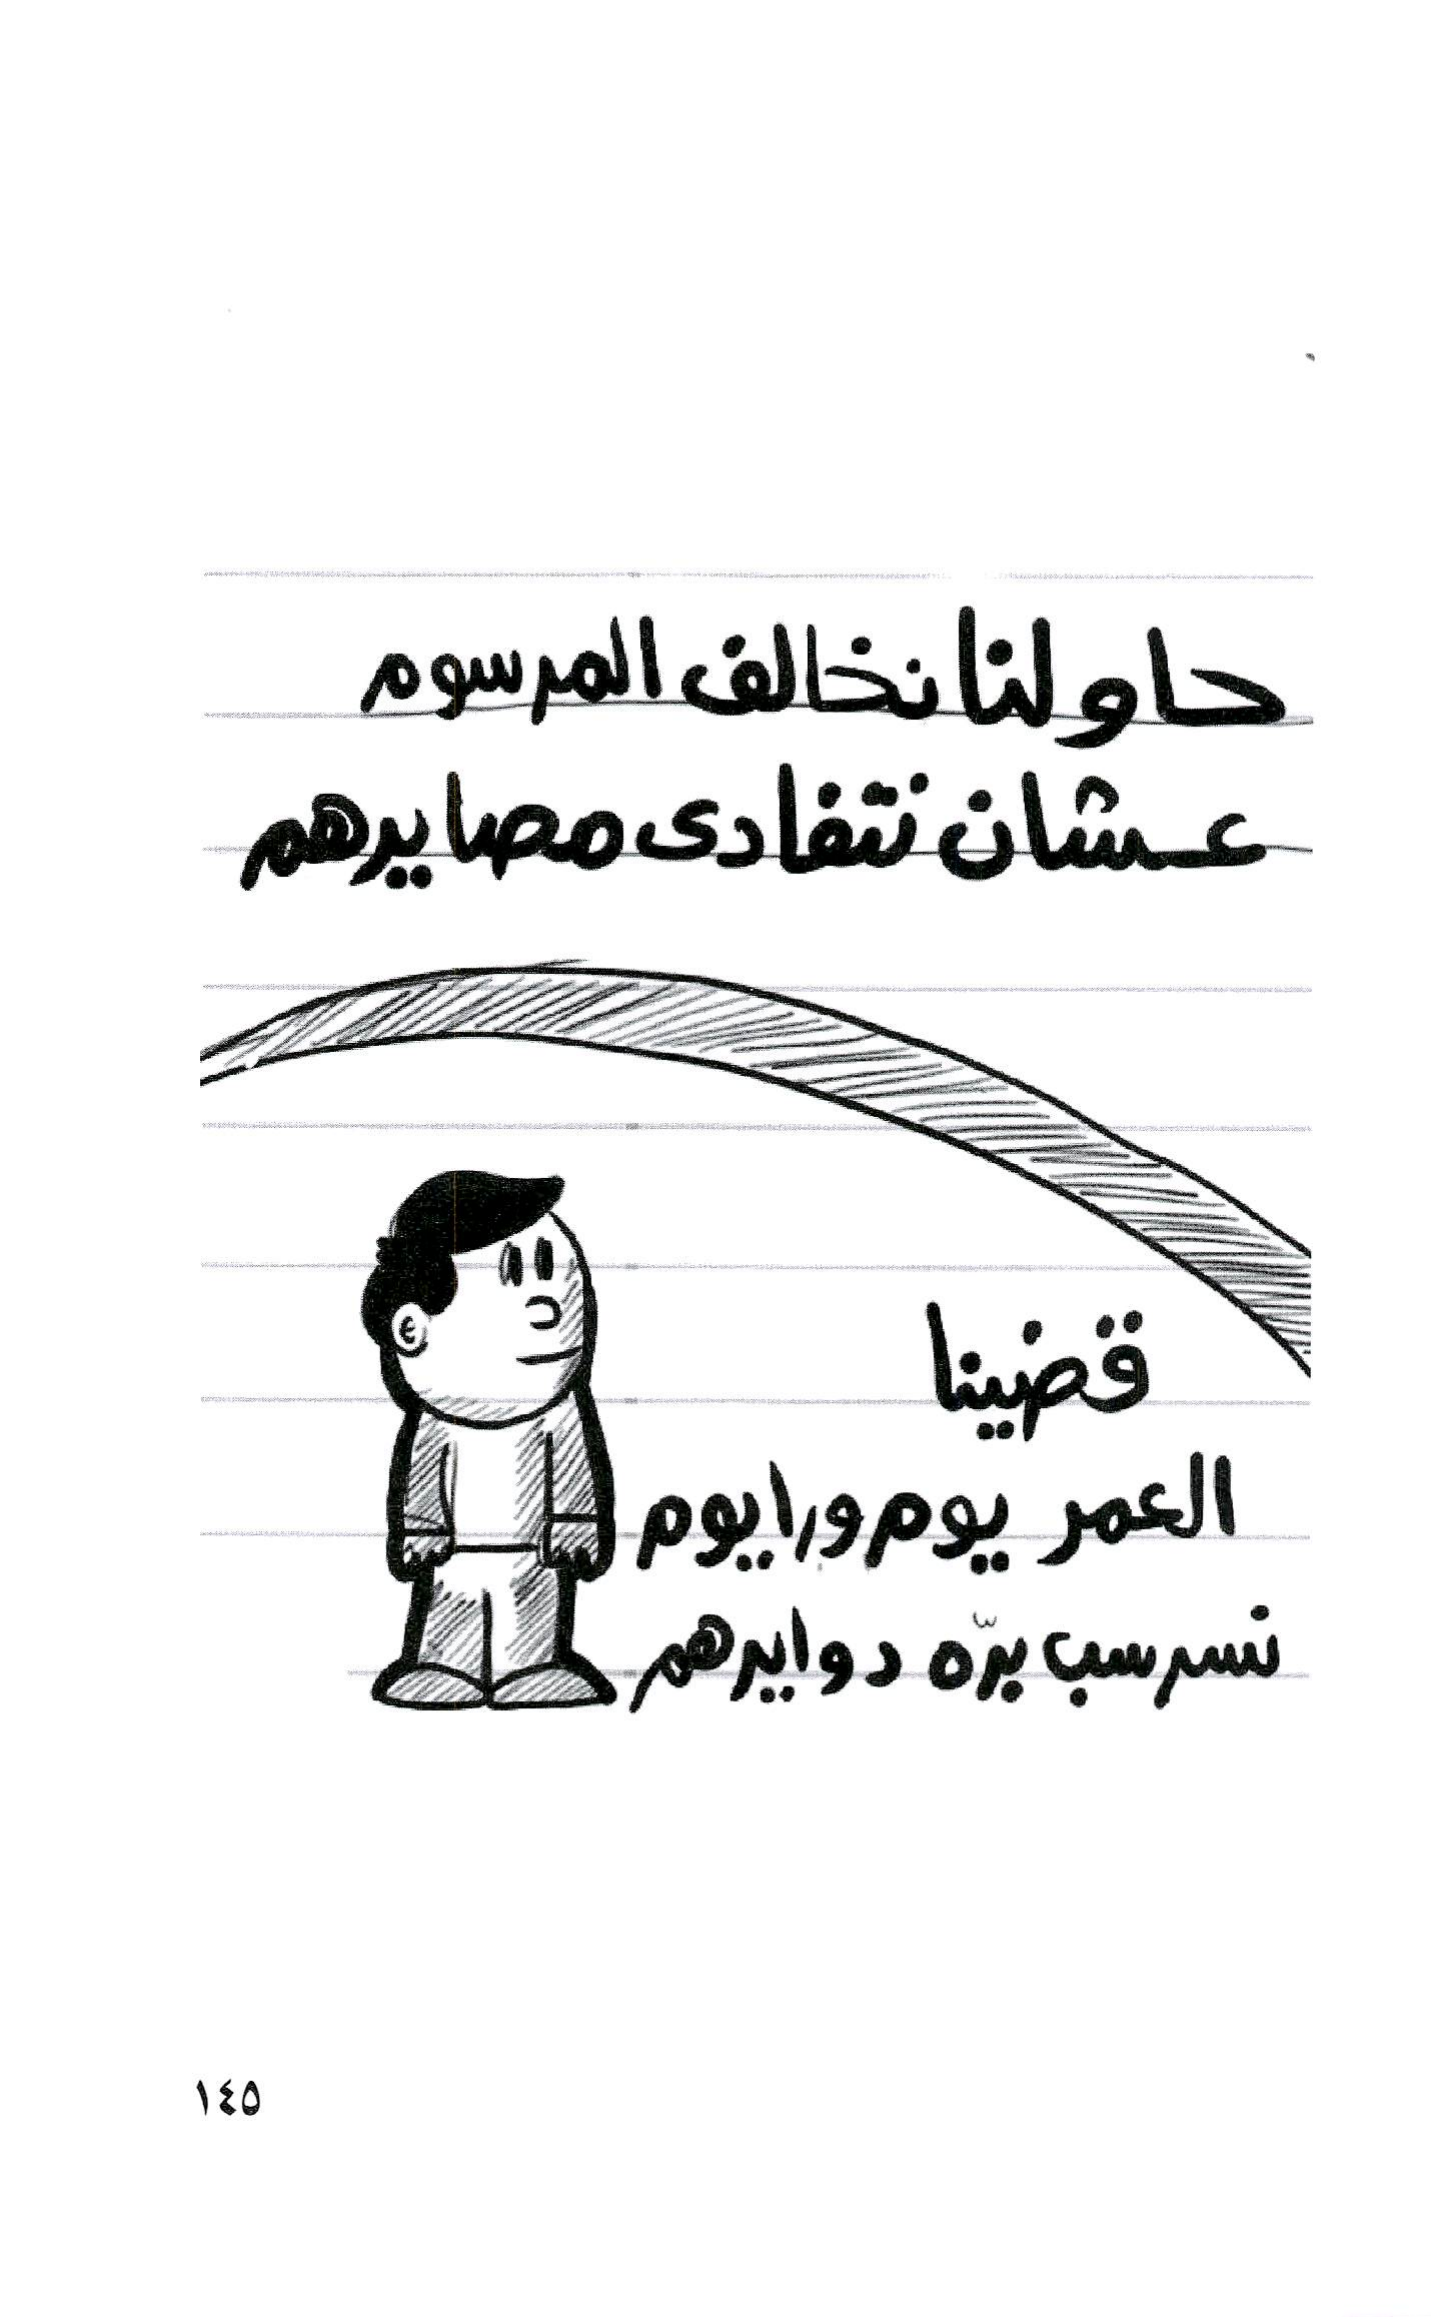 حاولنا نخالف المرسوم
عشان نتفادى مصايرهم
قضينا
العمر يوم ورا يوم
نسرسب برّه دوايرهم
١٤٥